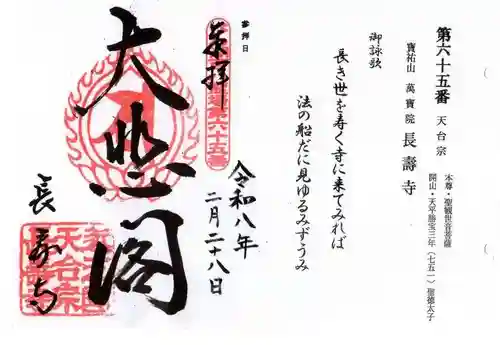 第六十五番 天台宗
寶祐山 萬寶院 長壽寺
本尊・聖観世音菩薩
開山・天平勝宝三年(七五一)聖徳太子
御詠歌
長き世を寿く寺に来てみれば
法の船だに見ゆるみずうみ
参拝日
令和八年
二月二十八日
奉拝
第六十五番
大悲閣
長寿寺
天台宗